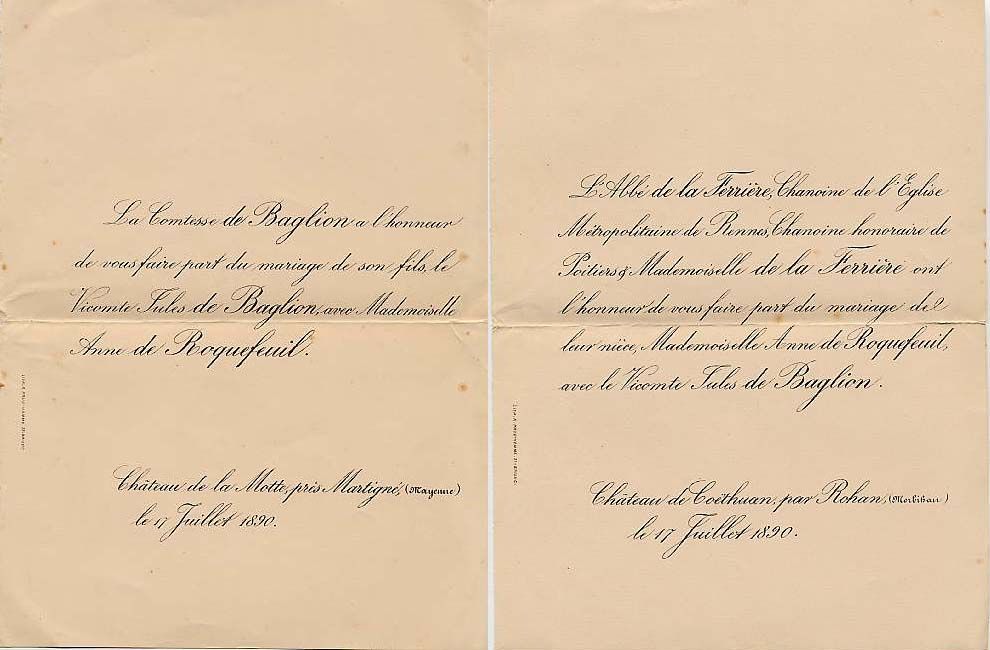 La Comtesse de Baglion a l'honneur
de vous faire part du mariage de son fils, le
Vicomte Jules de Baglion, avec Mademoiselle
Anne de Roquefeuil.
Château de la Motte, près Martigné, (Mayenne)
le 17 Juillet 1890.
L'Abbé de la Ferrière, Chanoine de l'Eglise
Métropolitaine de Rennes, Chanoine honoraire de
Poitiers & Mademoiselle de la Ferrière ont
l'honneur de vous faire part du mariage de
leur nièce, Mademoiselle Anne de Roquefeuil,
avec le Vicomte Jules de Baglion.
Château de Coëthuan, par Rohan, (Morbihan)
le 17 Juillet 1890.